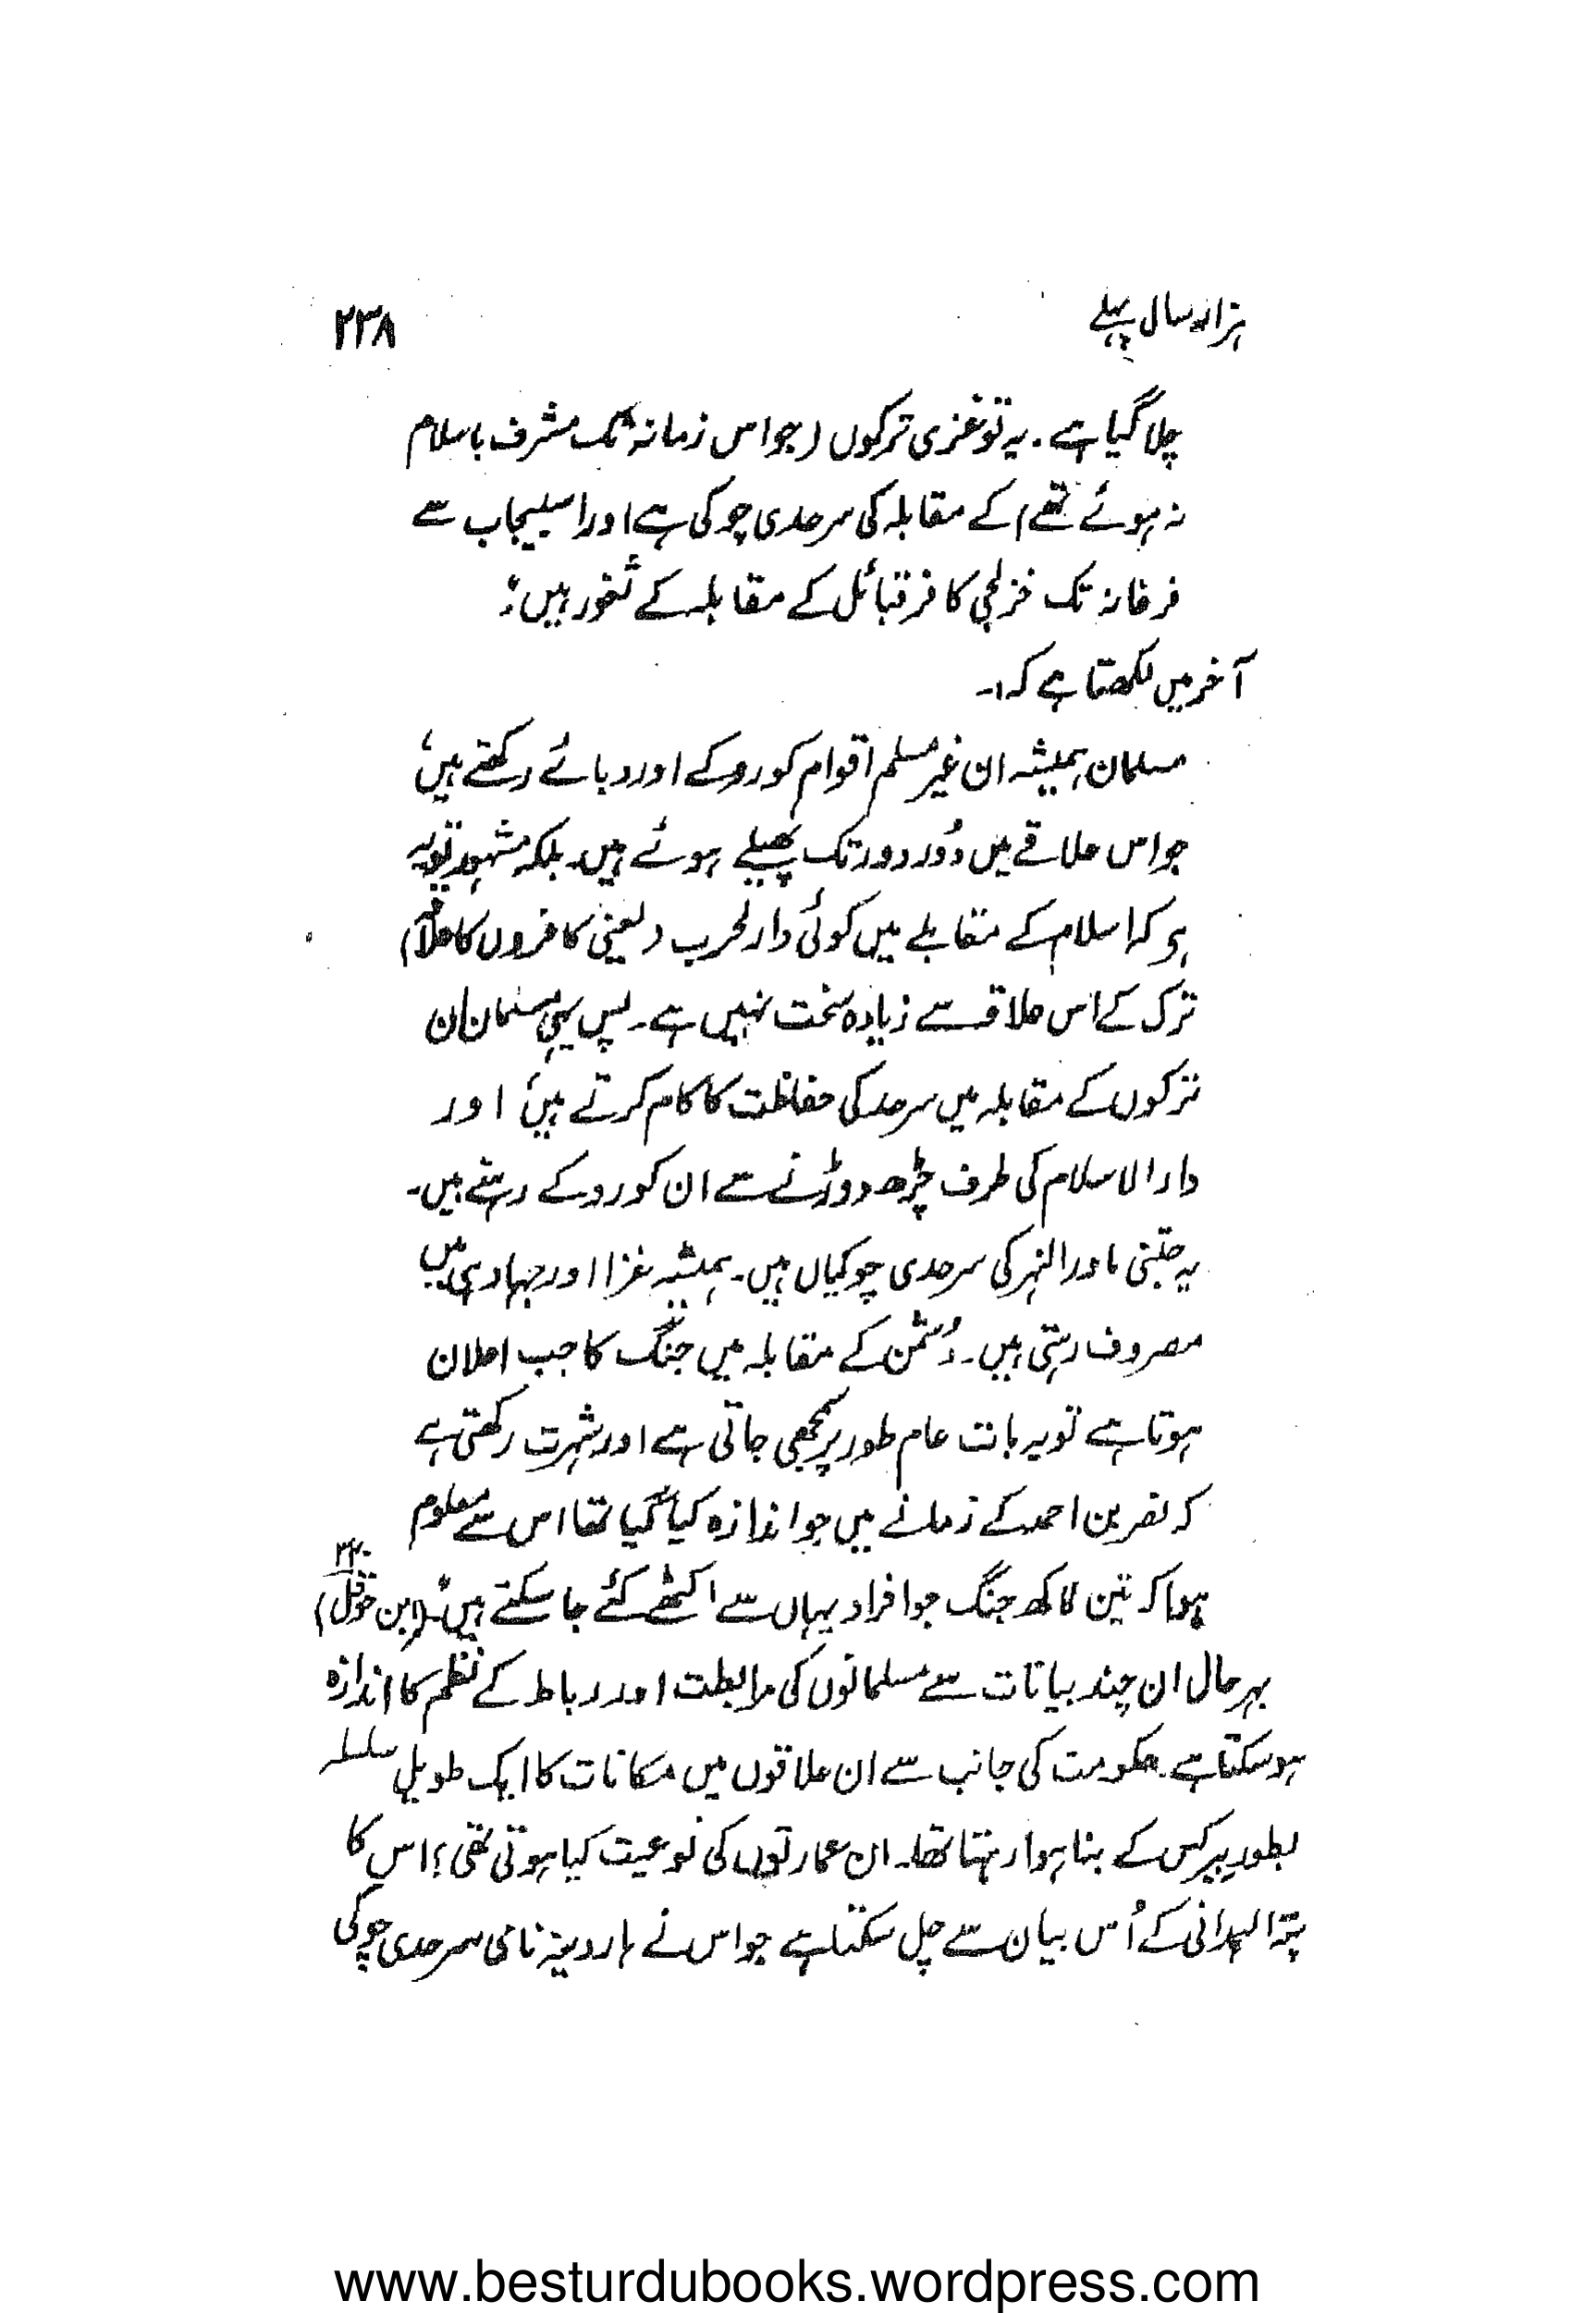 ہزار سال پہلے
۲۳۸
چلا گیا ہے ۔ یہ تو غزی ترکوں (جو اس زمانہ تک مشرف باسلام
نہ ہوئے تھے) کے مقابلہ کی سرحدی چوکی ہے اور اسبیجاب سے
فرغانہ تک خزلجی کافر قبائل کے مقابلہ کے ثغور ہیں؛
آخر میں لکھتا ہے کہ ۔
مسلمان ہمیشہ ان غیر مسلم اقوام کو روکے اور دبائے رکھتے ہیں،
جو اس علاقے میں دُور دور تک پھیلے ہوئے ہیں۔ بلکہ مشہور تو یہ
ہے کہ اسلام کے مقابلے میں کوئی دارلحرب (یعنی کافروں کا علاقہ)
ترک کے اس علاقہ سے زیادہ سخت نہیں ہے۔ پس یہی مسلمان ان
ترکوں کے مقابلہ میں سرحد کی حفاظت کا کام کرتے ہیں، اور
دار الاسلام کی طرف چڑھ دوڑنے سے ان کو روکے رہتے ہیں۔
یہ جتنی ماورالنہر کی سرحدی چوکیاں ہیں۔ ہمیشہ غزا اور جہاد ہی میں
مصروف رہتی ہیں۔ دُشمن کے مقابلہ میں جنگ کا جب اعلان
ہوتا ہے تو یہ بات عام طور پر سمجھی جاتی ہے اور شہرت رکھتی ہے
کہ نصر بن احمد کے زمانے میں جو اندازہ کیا گیا تھا اس سے معلوم
ہوا کہ تین لاکھ جنگ جو افراد یہاں سے اکٹھے کئے جا سکتے ہیں؛ (ابن حوقل)
بہر حال ان چند بیانات سے مسلمانوں کی مرابطت اور رباط کے نظم کا اندازہ
ہو سکتا ہے۔ حکومت کی جانب سے ان علاقوں میں مکانات کا ایک طویل سلسلہ
بطور بیرکس کے بنا ہوا رہتا تھا۔ ان عمارتوں کی نوعیت کیا ہوتی تھی؟ اس کا
پتہ الہمدانی کے اُس بیان سے چل سکتا ہے جو اس نے نامی سرحدی چوکی
www.besturdubooks.wordpress.com